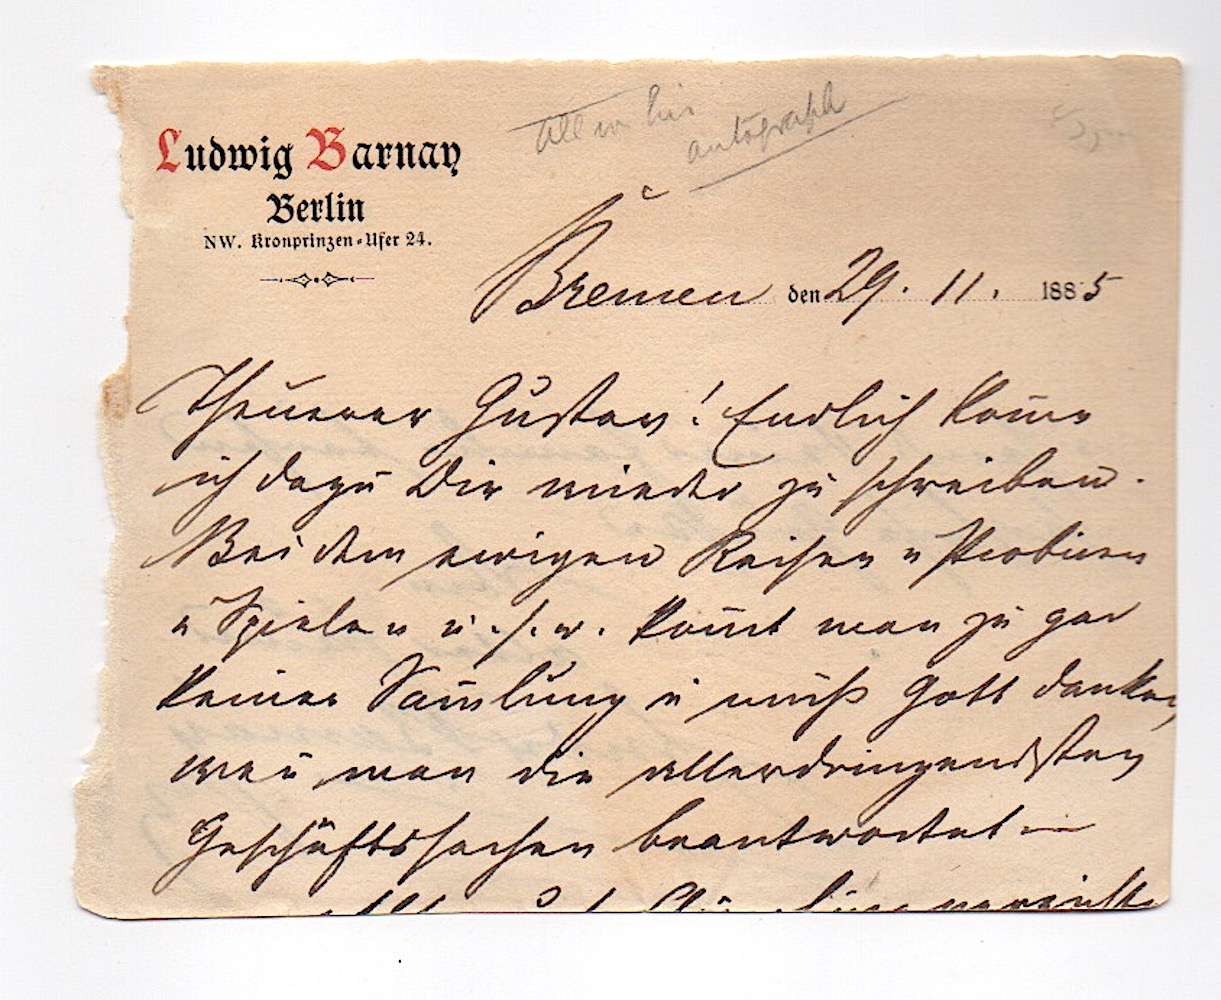 Ludwig Barnay
Berlin
NW. Kronprinzen-Ufer 24.
All in his
autograph
Bremen den 29. 11. 1885
Theuerer Gustav! Endlich kom̄e
ich dazu Dir wieder zu schreiben.
Bei dem ewigen Reisen u Probiren
u Spielen u. s. w. kom̄t man zu gar
keiner Sam̄lung u muß Gott danken,
wen̄ man die allerdringendsten
Geschäftssachen beantwortet —